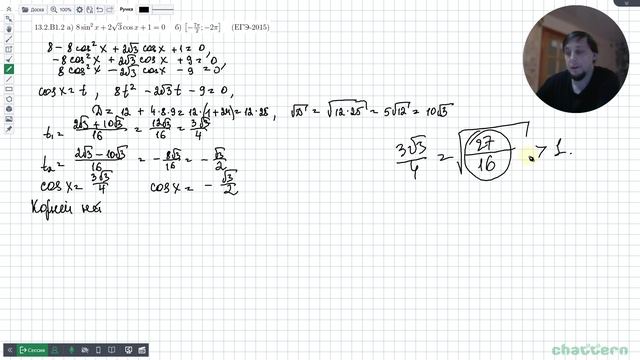 Доска 100% Ручка
13.2.B1.2 а) 8 sin² x + 2√3 cos x + 1 = 0 б) [−7π/2; −2π] (ЕГЭ-2015)
8 − 8 cos² x + 2√3 cos x + 1 = 0,
−8 cos² x + 2√3 cos x + 9 = 0,
8 cos² x − 2√3 cos x − 9 = 0,
cos x = t, 8t² − 2√3 t − 9 = 0,
D = 12 + 4·8·9 = 12·(1+24) = 12·25, √D = √12·25 = 5√12 = 10√3
t₁ = (2√3 + 10√3)/16 = 12√3/16 = 3√3/4
t₂ = (2√3 − 10√3)/16 = −8√3/16 = −√3/2
cos x = 3√3/4 cos x = −√3/2
Корней нет
3√3/4 = √27/16 > 1.
Сессия
chattern